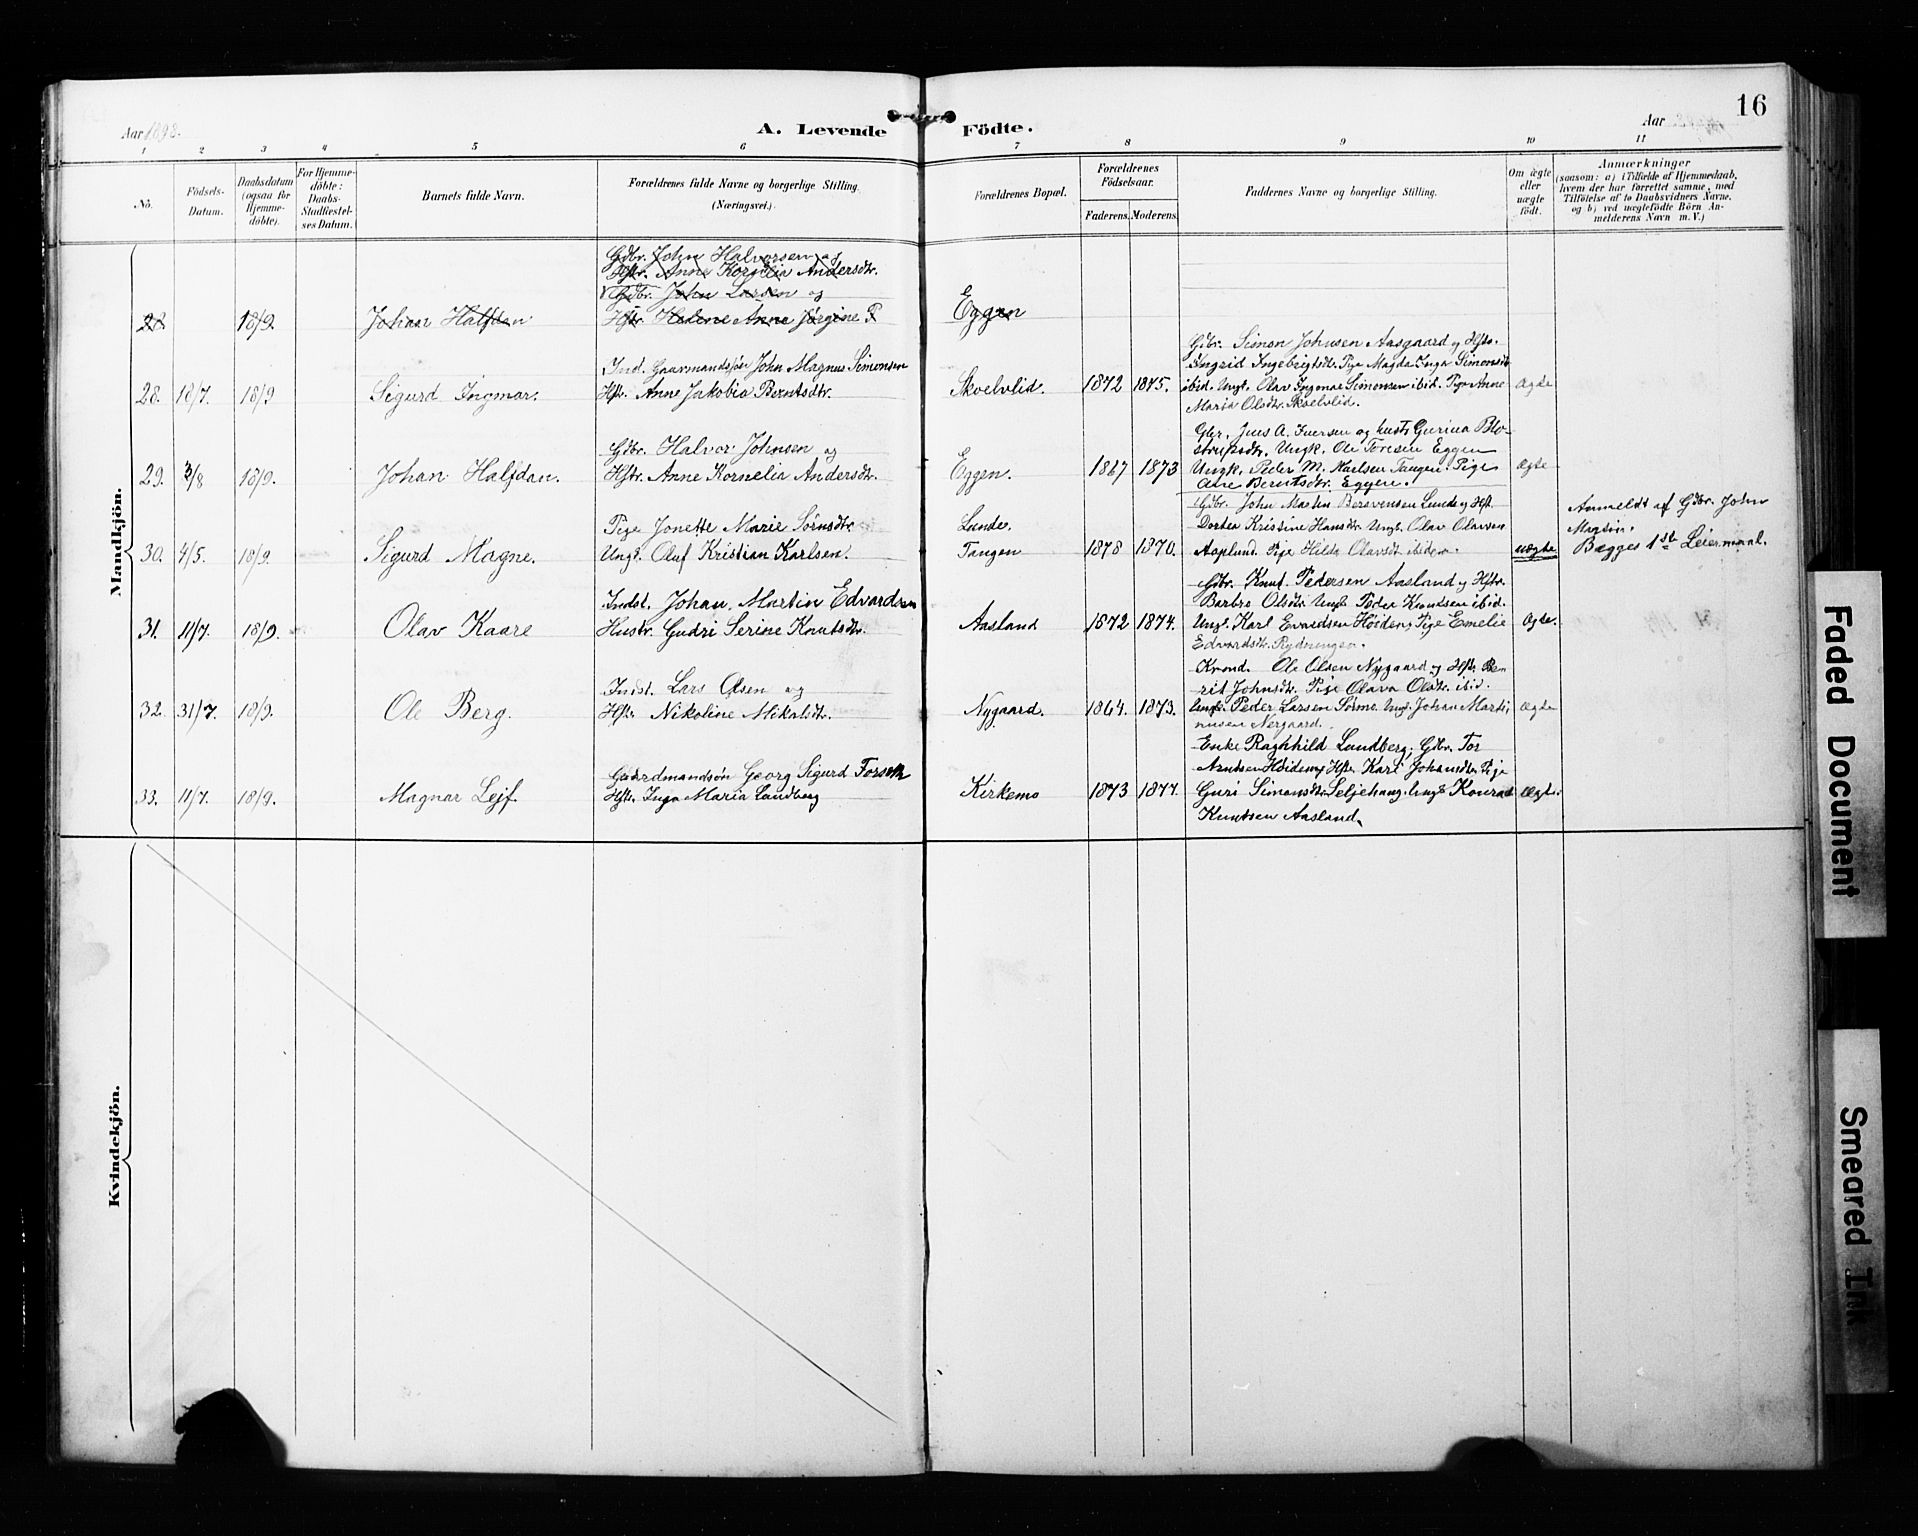 16
Aar 1898.
A. Levende Födte.
Aar
1 2 3 4 5 6 7 8 9 10 11
No.
Födsels-
Datum.
Daabsdatum
(ogsaa for
Hjemme-
döbte).
For Hjemme-
döbte:
Daabs-
Stadfæstel-
ses Datum.
Barnets fulde Navn.
Forældrenes fulde Navne og borgerlige Stilling.
(Næringsvei.)
Forældrenes Bopæl.
Forældrenes
Födselsaar.
Faderens. Moderens.
Faddernes Navne og borgerlige Stilling.
Om ægte
eller
uægte
födt.
Anmærkninger
(saasom: a) i Tilfælde af Hjemmedaab,
hvem der har forrettet samme, med
Tilföielse af to Daabsvidners Navne,
og b) ved uægtefödte Börn An-
melderens Navn m. V.)
Mandkjön.
Gdbr. John Halvorsen og
Hstr. Anne Kornelia Andersdtr.
Gdbr. John Larsen og
28 18/9 Johan Halfdan Hstr. Helene Anna Jørgine P Eggen
28. 18/7. 18/9 Sigurd Ingmar.
Ind. Gaardmandssøn John Magnus Simonsen
Hstr. Anne Jakobia Berntsdtr.
Skoelvlid. 1872 1875.
Gdbr. Simon Johnsen Aasgaard og Hstr.
Ingrid Ingebrigtsdtr. Pige Magda Inga Simonsdtr
ibid. Ungk. Olav Ingmar Simonsen ibid. Pige Anne
Maria Olsdtr. Skoelvlid.
Ægte
29. 3/8 18/9. Johan Halfdan.
Gdbr. Halvor Johnsen og
Hstr. Anne Kornelia Andersdtr.
Eggen. 1867 1873
Gbr. Jens A. Iversen og hustr Gurina
Ungk. Ole Toresen Eggen
Ungk. Peder M. Karlsen Tangen. Pige
Berntsdtr. Eggen.
Ægte
30. 4/5. 18/9. Sigurd Magne.
Pige Jonette Marie Sörnsdtr
Ungk. Oluf Kristian Karlsen.
Lunde.
Tangen 1878 1870.
Gdbr. John Martin Lunde og Hst.
Dortea Kristine Hansdtr Ungk. Olav Olavsen
Pige Hilda Olavsdt ibidem.
uægte
Anmeldt af Gdbr. John
Bægges 1ste Leiermaal.
31. 11/7. 18/9. Olav Kaare
Indst. Johan Martin Edvardsen
Hustr. Gudri Serine Knutsdtr.
Aasland 1872 1874.
Gdbr. Knut Pedersen Aasland og Hstr.
Barbro Olsdtr Ungk Peder Knutsen ibid.
Ungk. Karl Evardsen Höiden, Pige Emelie
Edvardsdtr. Rydningen.
Ægte.
32. 31/7. 18/9. Ole Berg.
Indst. Lars Olsen og
Hstr. Nikoline Mikalsdtr.
Nygaard. 1864. 1873.
Kaard. Ole Olsen Nygaard og Hstr. Be-
rit Johnsdtr. Pige Olava Olsdtr. ibid.
Ungk. Peder Larsen Sörmo Ungk. Johan Marti-
nusen Nergaard.
Ægte
33. 11/7. 18/9. Magnar Lejf.
Gaardmandsøn Georg Sigurd Forseth
Hstr. Inga Maria Lundberg
Kirkemo 1873 1877.
Enke Raghhild Lundberg, Gdbr. Tor
Arntsen Höiden og Hstr. Kari Johansdtr. Pige
Guri Simonsdtr. Seljehaug. Ungk Konrad
Knutsen Aasland.
Ægte.
Kvindekjön.
Faded Document
Smeared Ink